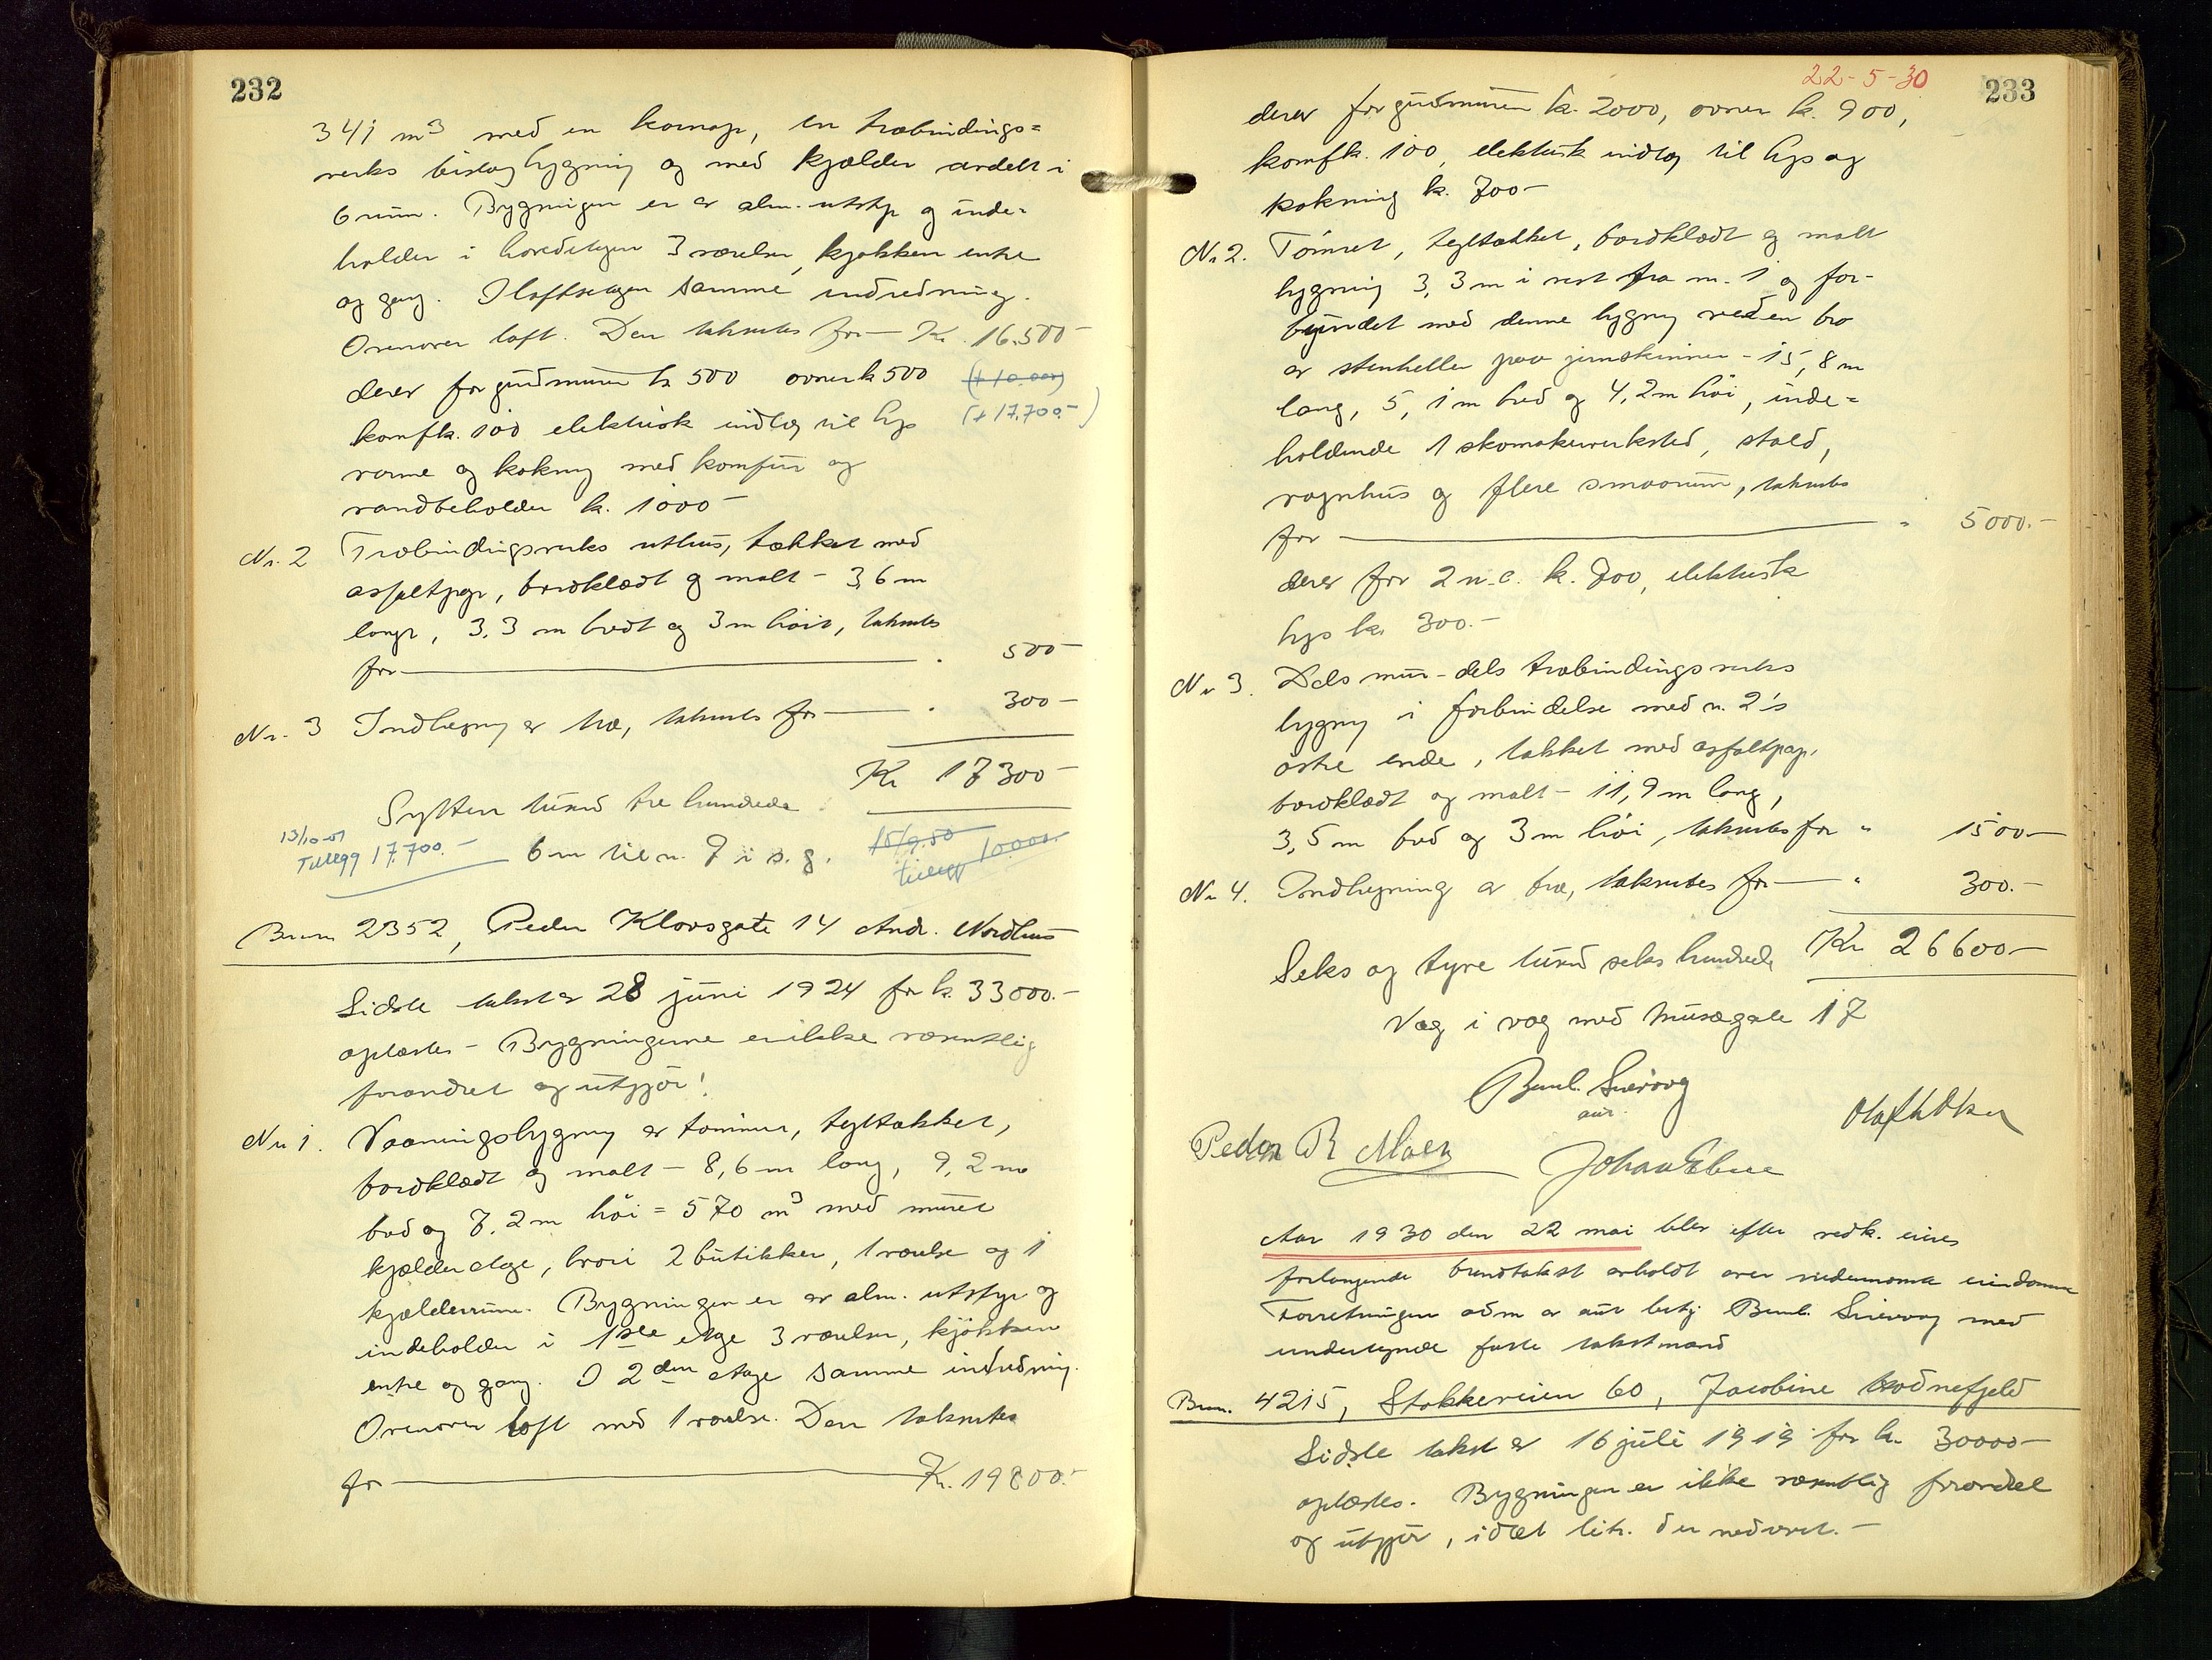 232
341 m³ med en karnap, en træbindings=
verks bislagbygning og med kjælder avdelt i
6 rum. Bygningen er av alm. utstyr og inde=
holder i hovedetagen 3 værelser, kjøkken entre
og gang. I loftsetagen samme indredning.
Ovenover loft. Den takseres for — Kr. 16.500 —
derav for grundmuren k 500 ovner k 500 (+ 10.000)
komf k. 100 elektrisk indlæg til lys (+ 17.700.-)
varme og kokning med komfur og
vandbeholder k. 1000 —
Nr. 2 Træbindingsverks uthus, tækket med
asfaltpap, bordklædt og malt — 3,6 m
langt, 3,3 m bredt og 3 m høit, takseres
for — . 500 —
Nr. 3 Indhegning av træ, takseres for — . 300 —
Kr 17300 —
Sytten tusind tre hundrede
13/10-51
Tillegg 17.700.- 6 m til n. 9 i s. g. 15/9.50
tillegg 10.000.-
Brnr. 2352, Peder Klovsgate 14 Andr. Nordhus
Sidste takst av 28 juni 1924 for k. 33000.-
oplæstes — Bygningerne er ikke væsentlig
forandret og utgjør!
Nr. 1. Vaaningsbygning av tømmer, tegltækket,
bordklædt og malt — 8,6 m lang, 9,2 m
bred og 7,2 m høi = 570 m³ med muret
kjælderetage, hvori 2 butikker, 1 værelse og 1
kjælderrum. Bygningen er av alm. utstyr og
indeholder i 1ste etage 3 værelser, kjøkken
entre og gang. I 2den etage samme indredning.
Ovenover loft med 1 værelse. Den takseres
for — Kr. 19800.-
22-5-30 233
derav for grundmuren k. 2000, ovner k. 900,
komf k. 100, elektrisk indlæg til lys og
kokning k. 700 —
Nr 2. Tømret, tegltækket, bordklædt og malt
bygning 3,3 m i vest fra nr. 1 og for-
bundet med denne bygning ved en bro
av stenheller paa jernskinner — 15,8 m
lang, 5,1 m bred og 4,2 m høi, inde=
holdende 1 skomakerverksted, stald,
vognhus og flere smaarum, takseres
for — " 5000.-
derav for 2 n.c. k. 700, elektrisk
lys kr 300.-
Nr 3. Dels mur- dels træbindingsverks
bygning i forbindelse med n. 2's
østre ende, tækket med asfaltpap,
bordklædt og malt — 11,9 m lang,
3,5 m bred og 3 m høi, takseres for " 1500 —
Nr 4. Indhegning av træ, takseres for — " 300.-
Seks og tyve tusind seks hundrede Kr 26600 —
Væg i væg med Musægate 17
Bernh. Snevoog
aut.
Olaf
Peder R Moen Johan
Aar 1930 den 22 mai blev efter vedk. eieres
forlangende brandtakst avholdt over nedennævnte eiendomme
Forretningen adm av aut besty. Bernh. Snevoog med
undertegnede faste takstmænd
Brnr. 4215, Stokkeveien 60, Jacobine Hodnefjeld
Sidste takst av 16 juli 1919 for kr. 30000 —
oplæstes. Bygningen er ikke væsentlig forandret
og utgjør, idet litr. d er nedrevet. —